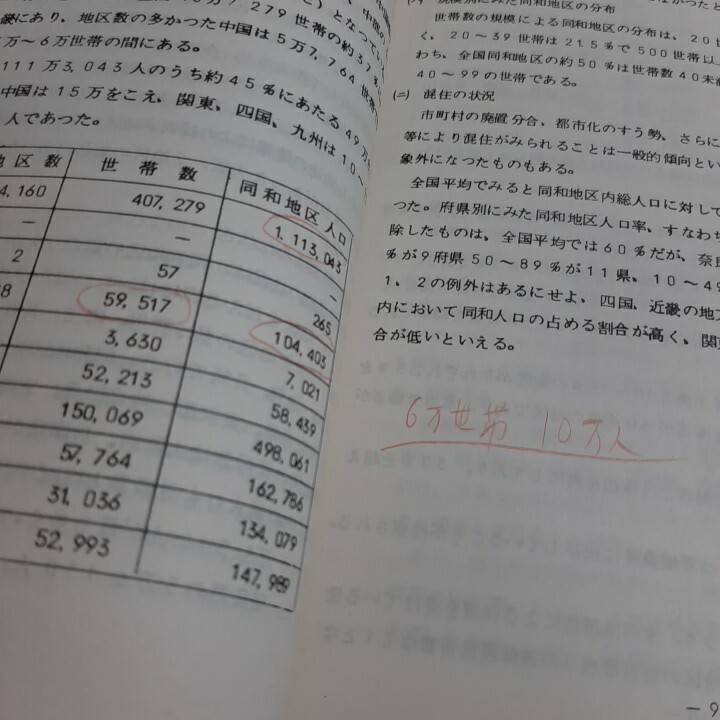 279世帯の約37%
となつてい
にあり、地区数の多かつた中国は5万7,764世帯
万~6万世帯の間にある。
111万3,043人のうち約45%にあたる49万
中国は15万をこえ、関東、四国、九州は10~
人であつた。
地区数 世帯数 同和地区人口
4,160 407,279 1,113,043
— — —
2 57 265
59,517 104,403
3,630 7,021
52,213 58,439
150,069 498,061
57,764 162,786
31,036 134,079
52,993 147,989
規模別にみた同和地区の分布
世帯数の規模による同和地区の分布は、20世
く、20~39世帯は21.5%で500世帯以
わち、全国同和地区の約50%は世帯数40未満
40~99の世帯である。
(ニ) 混住の状況
市町村の廃置分合、都市化のすう勢、さらに
等により混住がみられることは一般的傾向とい
象外になつたものもある。
全国平均でみると同和地区内総人口に対して
つた。府県別にみた同和地区人口率、すなわち
除したものは、全国平均では60%だが、奈良
%が9府県50~89%が11県、10~49
1、2の例外はあるにせよ、四国、近畿の地方
内において同和人口の占める割合が高く、関東
合が低いといえる。
6万世帯 10万人
— 9